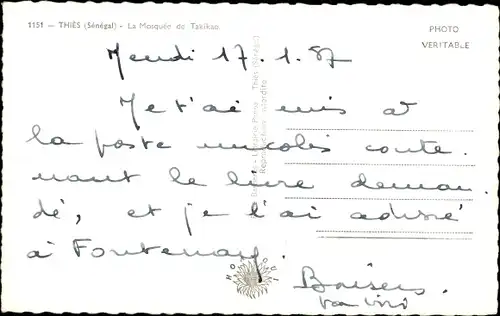 1151 — THIÈS (Sénégal) - La Mosquée de Takikao
PHOTO
VERITABLE
Jeudi 17.1.57
Je t'ai mis à
la poste un colis conte
nant le livre deman
dé, et je l'ai adressé
à Fontenay.
Baisers